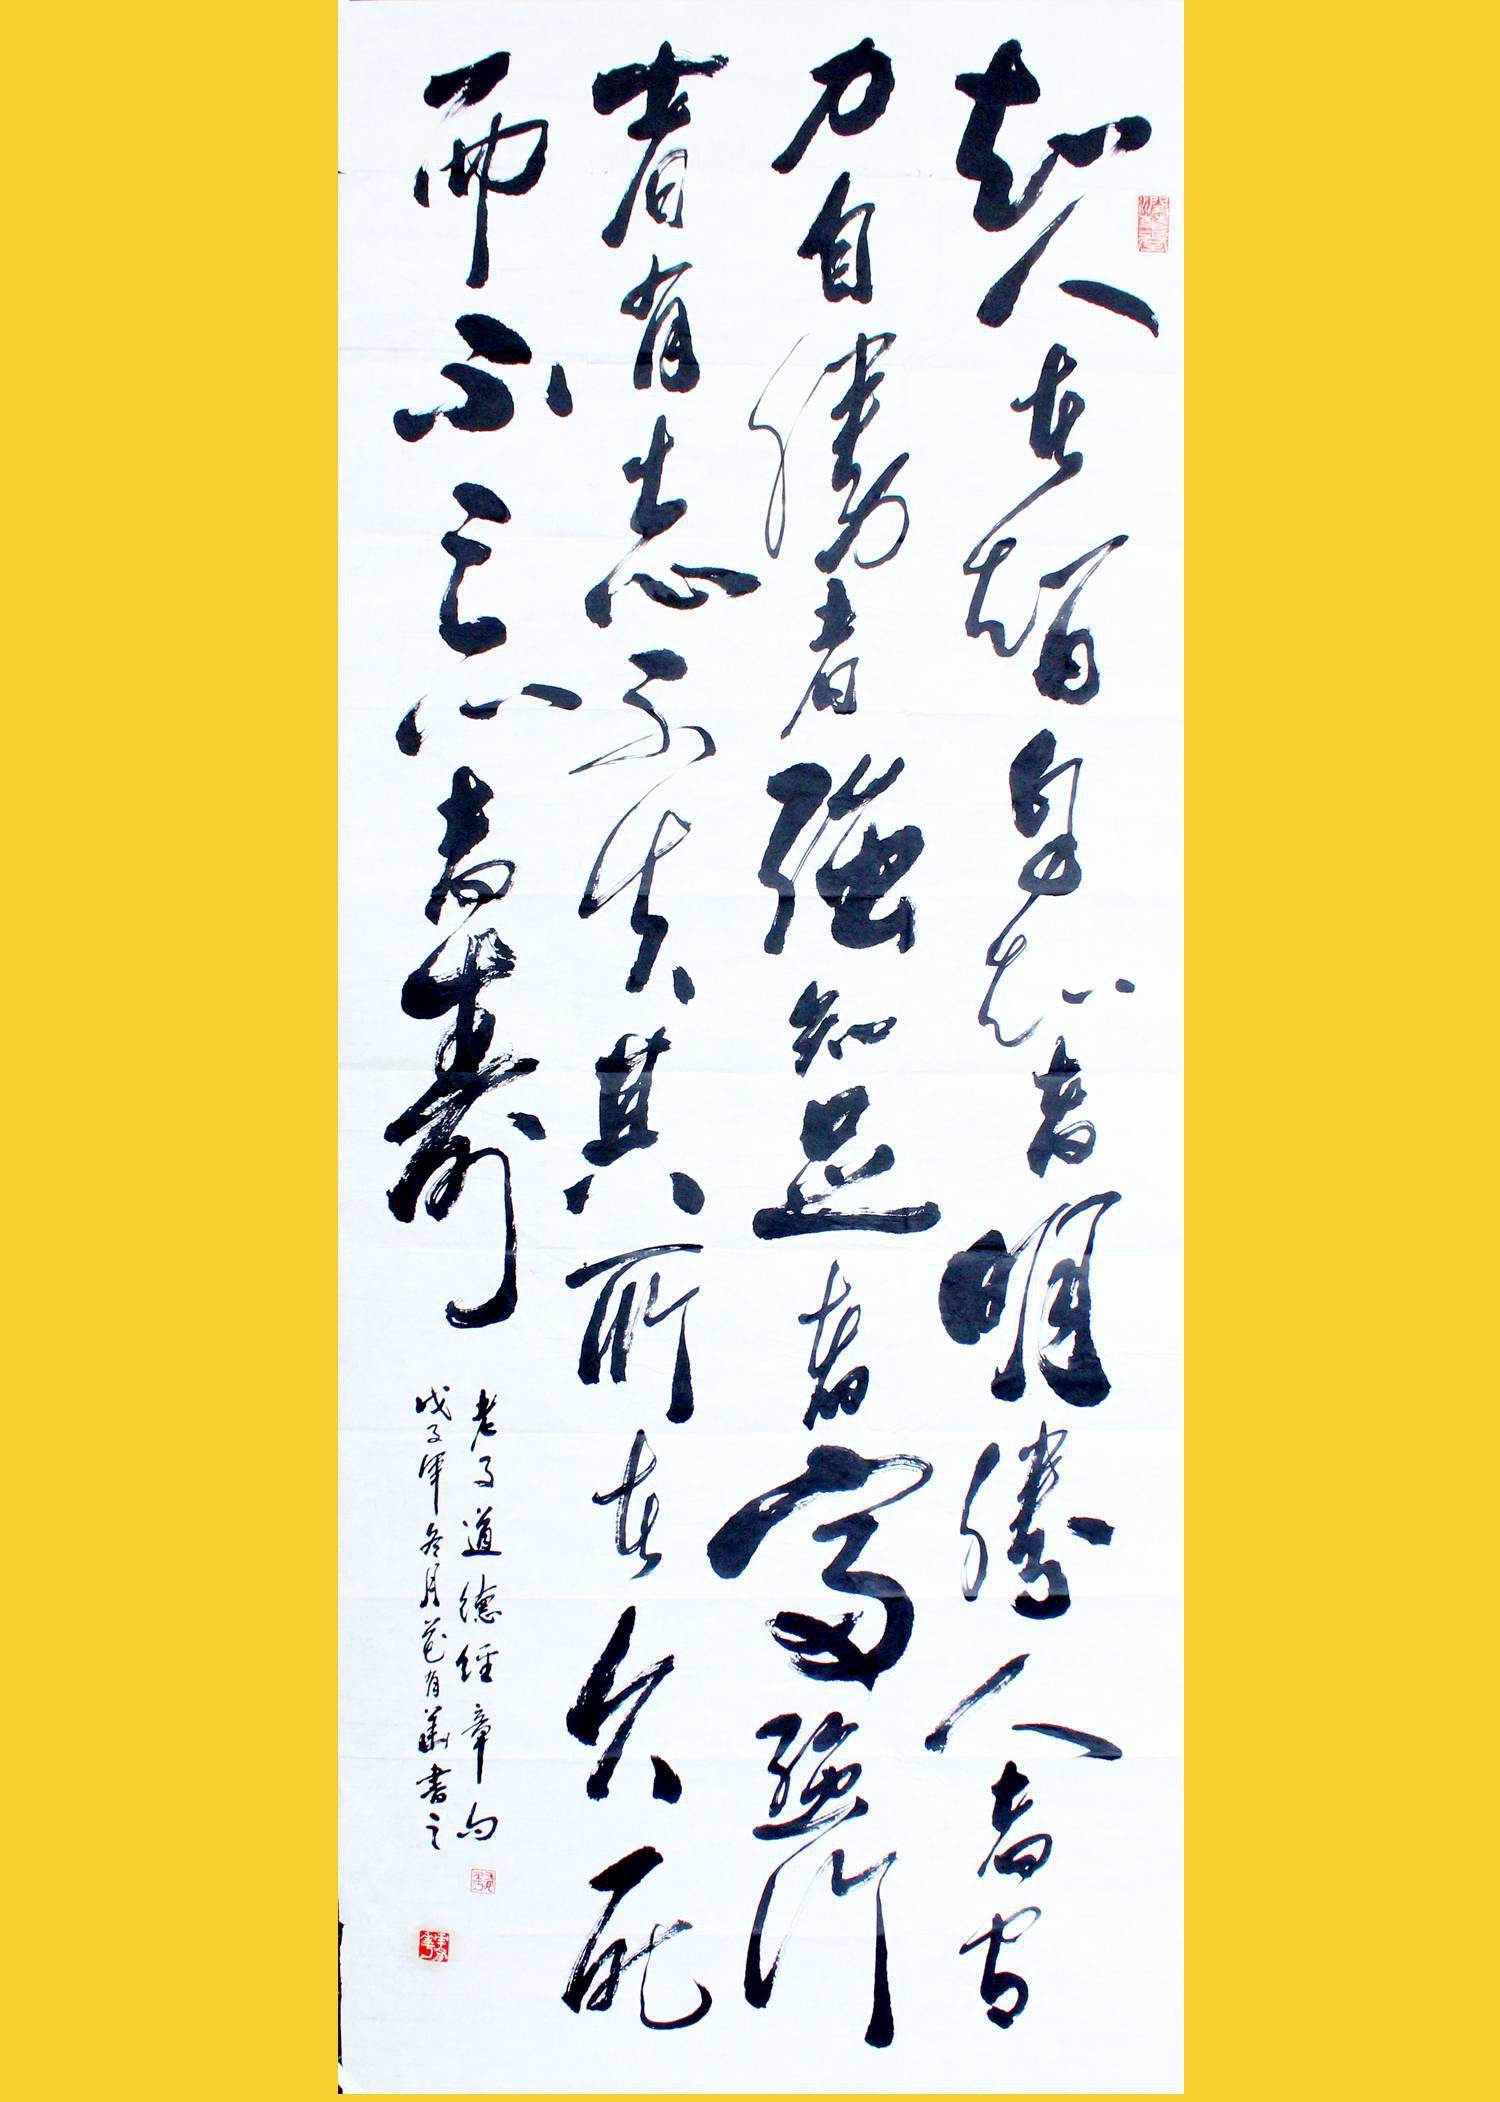 知人者智自知者明勝人者有
力自勝者強知足者富強行
者有志不失其所者久死
而不忘者壽
老子道德經章句
戊子年冬月有書之